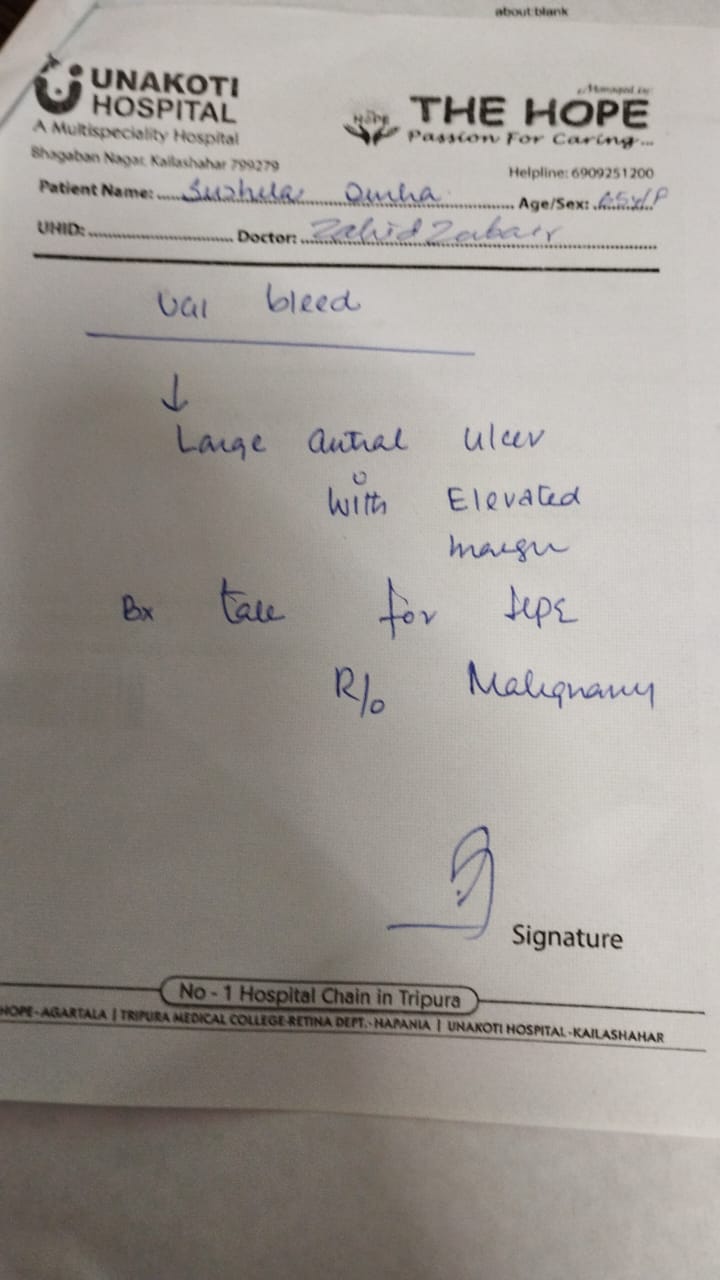 about:blank
UNAKOTI HOSPITAL
A Multispeciality Hospital
Bhagaban Nagar, Kailashahar 799279
Managed by:
HOPE
THE HOPE
Passion For Caring...
Helpline: 6909251200
Patient Name: Age/Sex:
UHID: Doctor: Zahid
UGI bleed
↓
Large antral ulcer
with Elevated
margin
Bx for
R/o Malignancy
Signature
No - 1 Hospital Chain in Tripura
HOPE-AGARTALA | TRIPURA MEDICAL COLLEGE-RETINA DEPT.- HAPANIA | UNAKOTI HOSPITAL-KAILASHAHAR